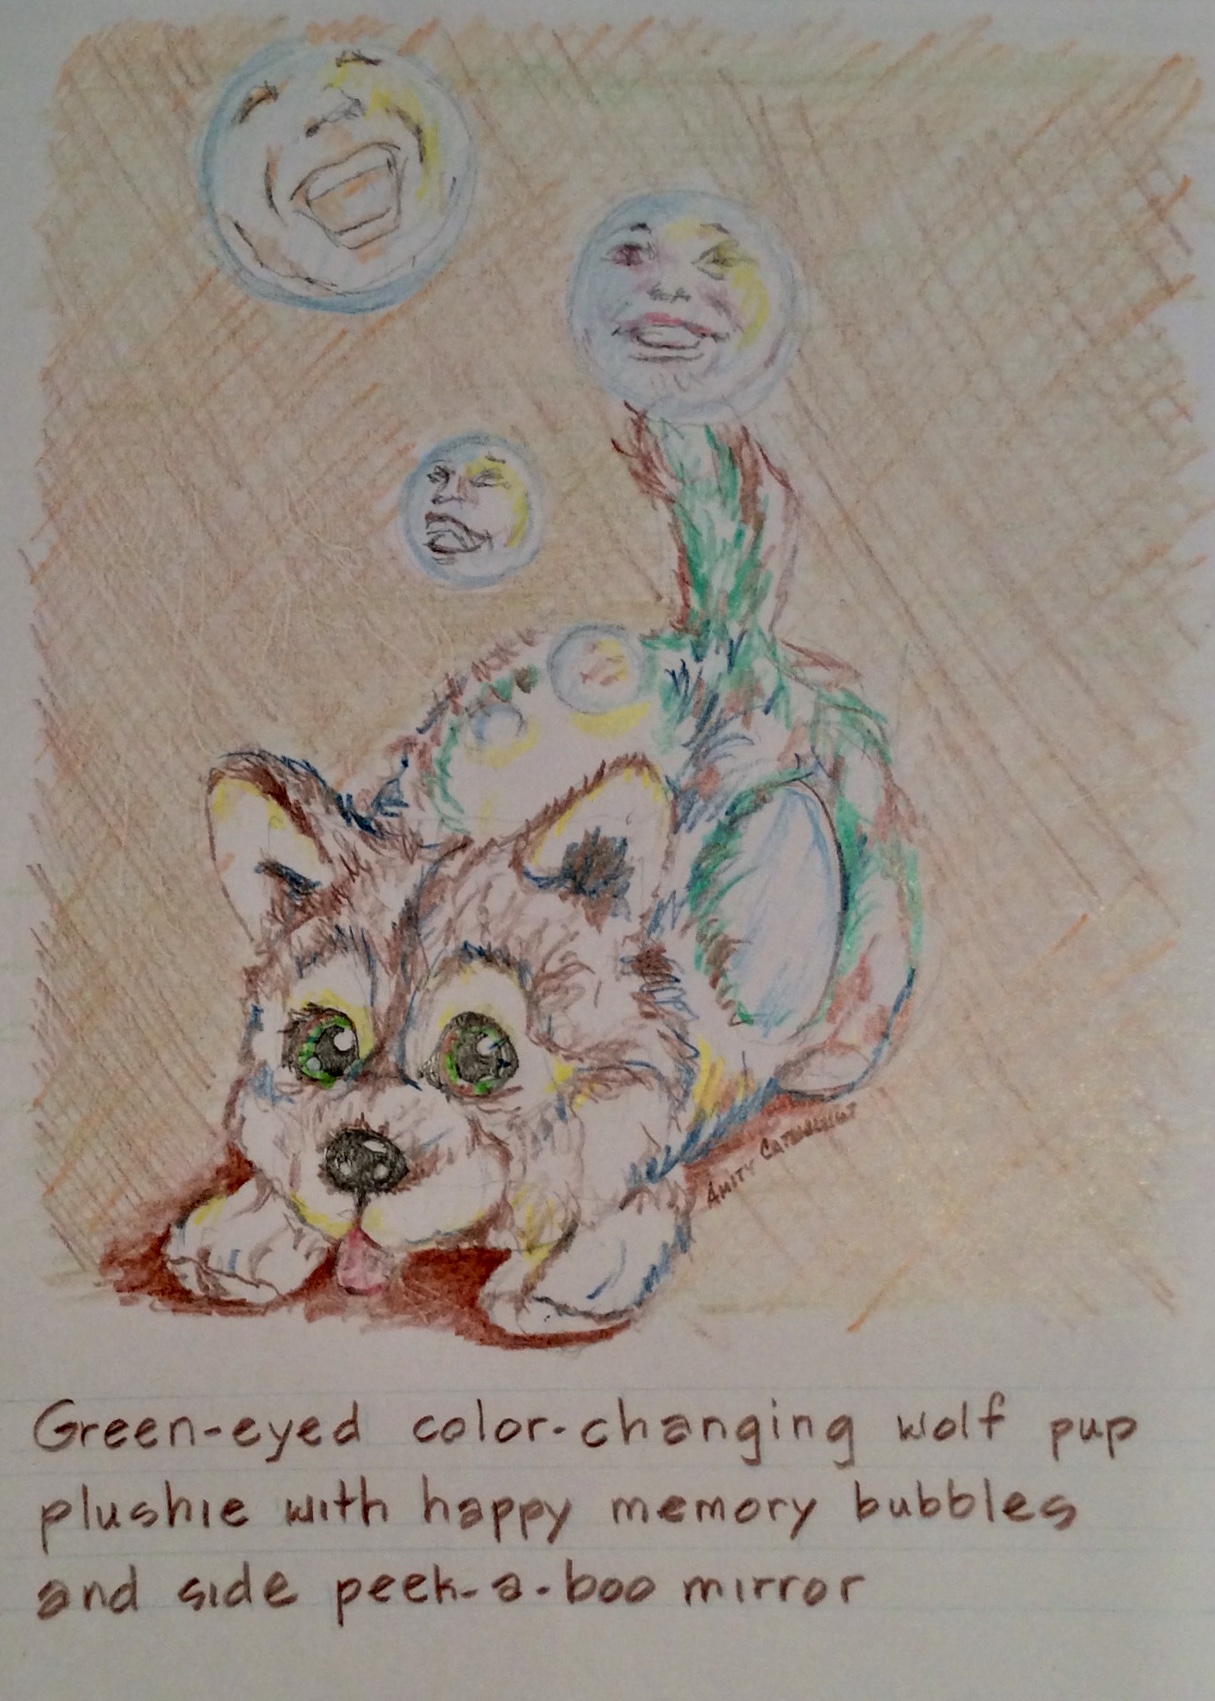 Amity
Green-eyed color-changing wolf pup
plushie with happy memory bubbles
and side peek-a-boo mirror